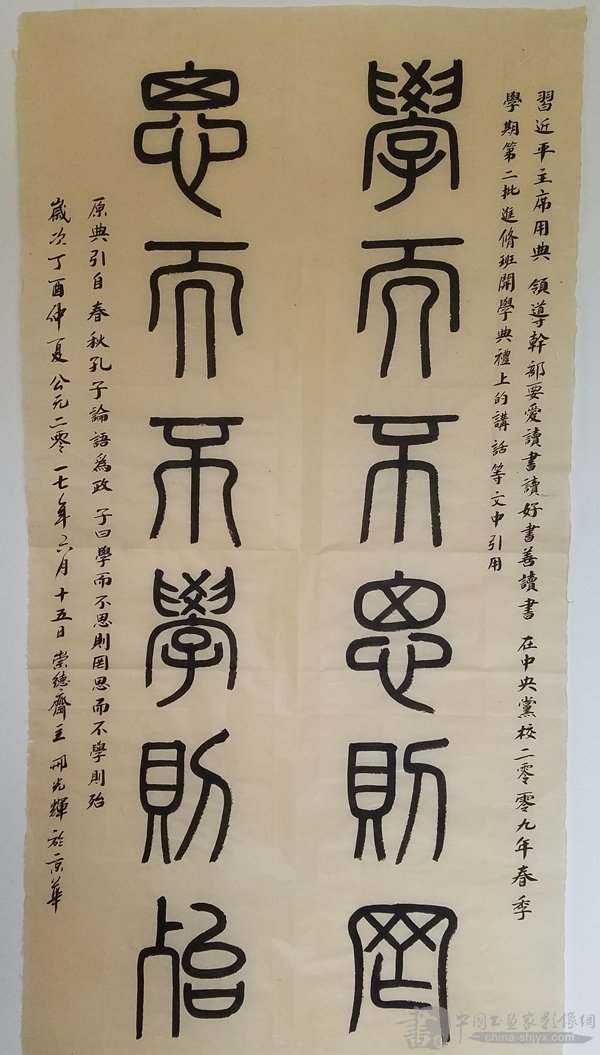 習近平主席用典 領導幹部要愛讀書讀好書善讀書 在中央黨校二零零九年春季
學期第二批進脩班開學典禮上的講話等文中引用
學而不思則罔
思而不學則殆
原典引自春秋孔子論語為政 子曰學而不思則罔思而不學則殆
歲次丁酉仲夏公元二零一七年六月十五日 崇德齋主 邢光輝 於京華
書 中國书画家影像網
china-shjyx.com